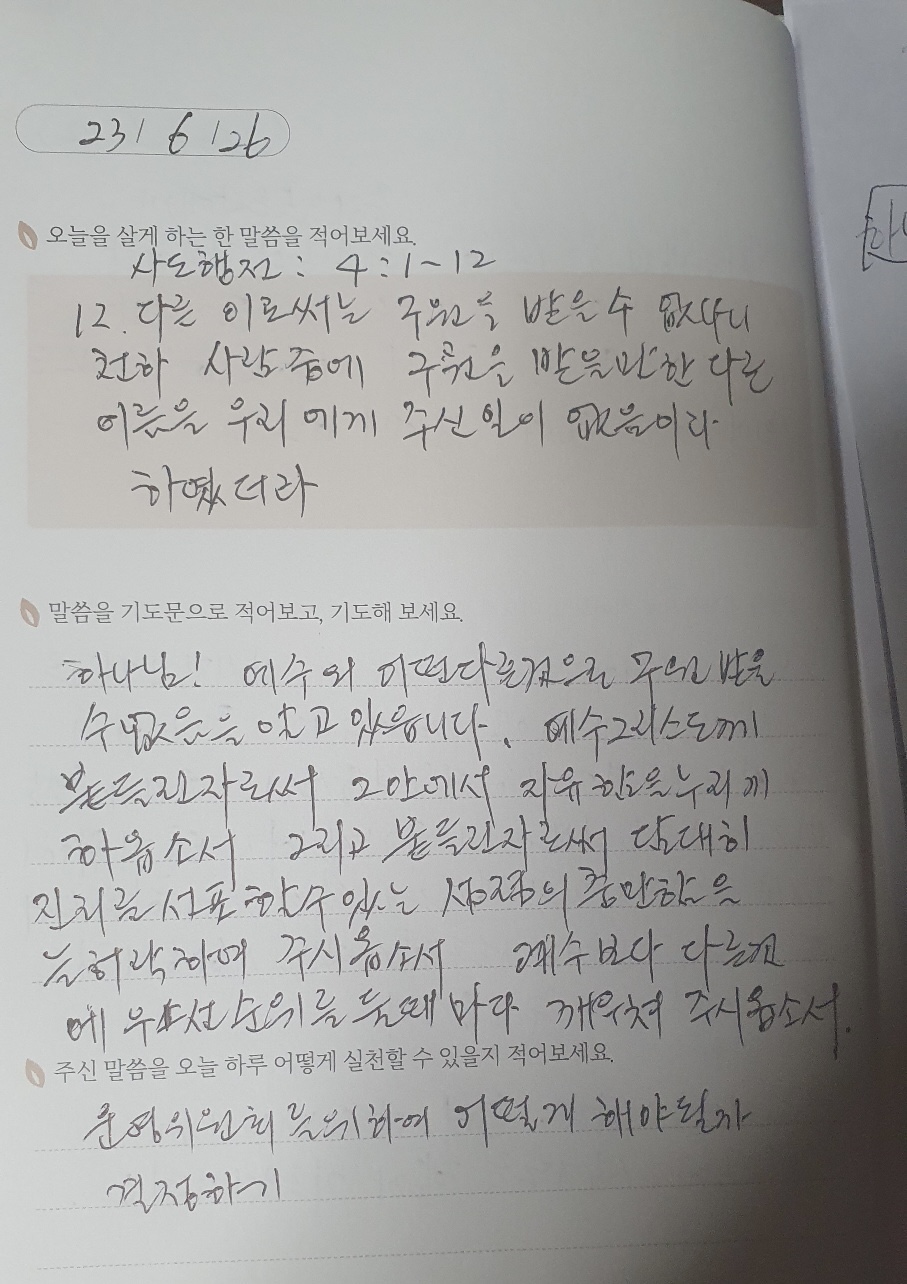 23 / 6 / 26
오늘을 살게 하는 한 말씀을 적어보세요.
사도행전 : 4 : 1~12
12. 다른 이로써는 구원을 받을 수 없나니
천하 사람 중에 구원을 받을만한 다른
이름을 우리 에게 주신일이 없음이라
하였더라
말씀을 기도문으로 적어보고, 기도해 보세요.
하나님! 예수외 어떤다른것으로 구원 받을
수없음을 알고 있읍니다. 예수그리스도께
붙들린자로써 그안에서 자유함을누리게
하옵소서 그리고 붙들린자로써 담대히
진리를 선포 할수있는 성령의 충만함을
늘허락하여 주시옵소서 예수보다 다른것
에 우선순위를 둘때 마다 깨우쳐 주시옵소서.
주신 말씀을 오늘 하루 어떻게 실천할 수 있을지 적어보세요.
운영위원회를위하여 어떻게 해야될까
결정하기